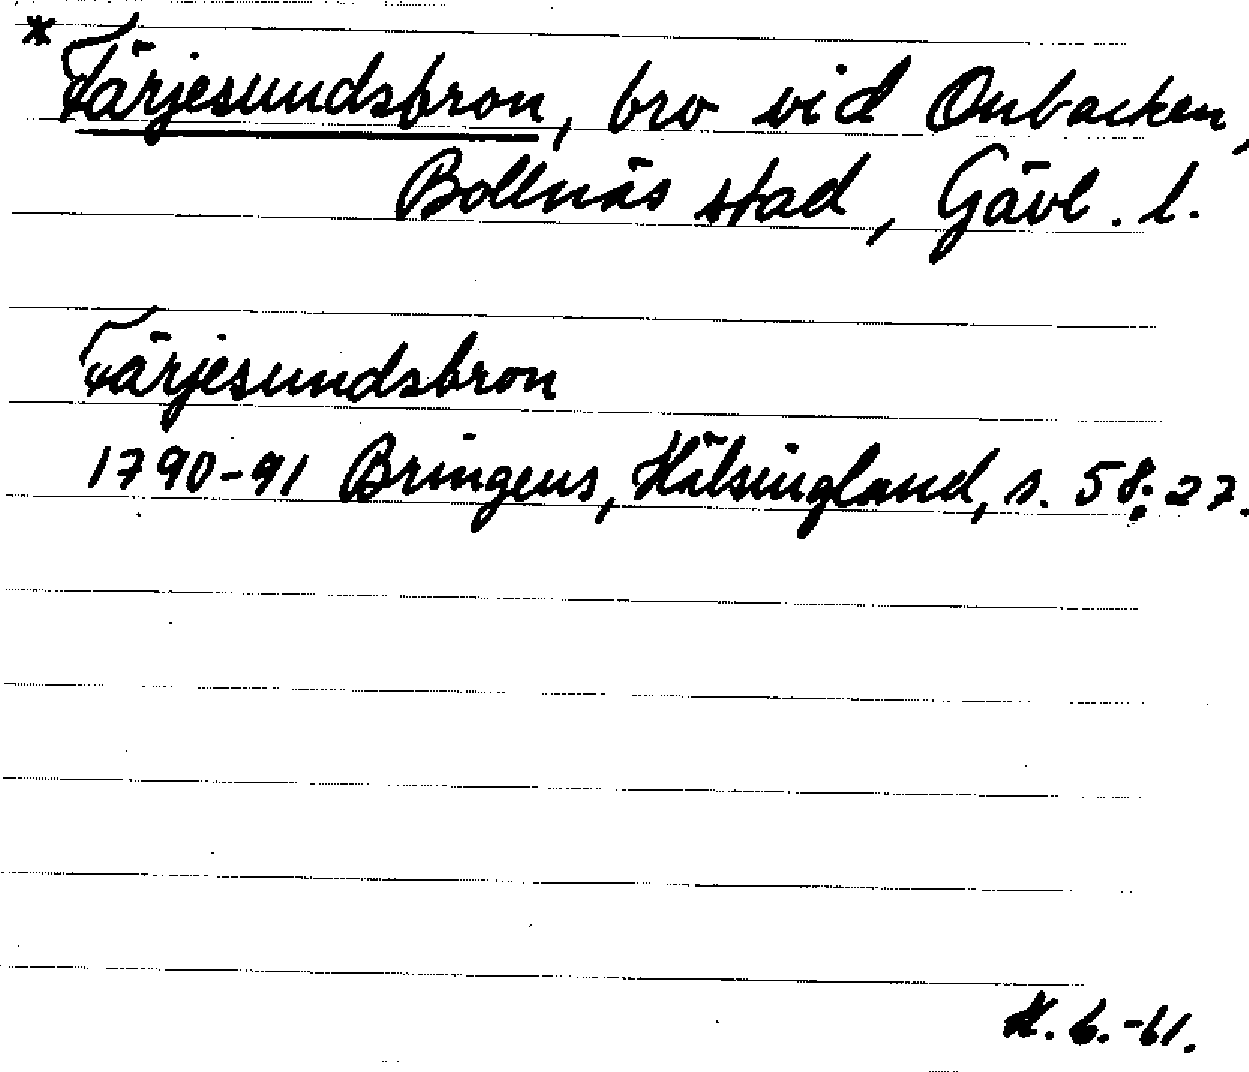 * Färjesundsbron, bro vid Onbacken,
Bollnäs stad, Gävl. l.
Färjesundsbron
1790-91 Bringéus, Hälsingland, s. 58; 27.
-61.